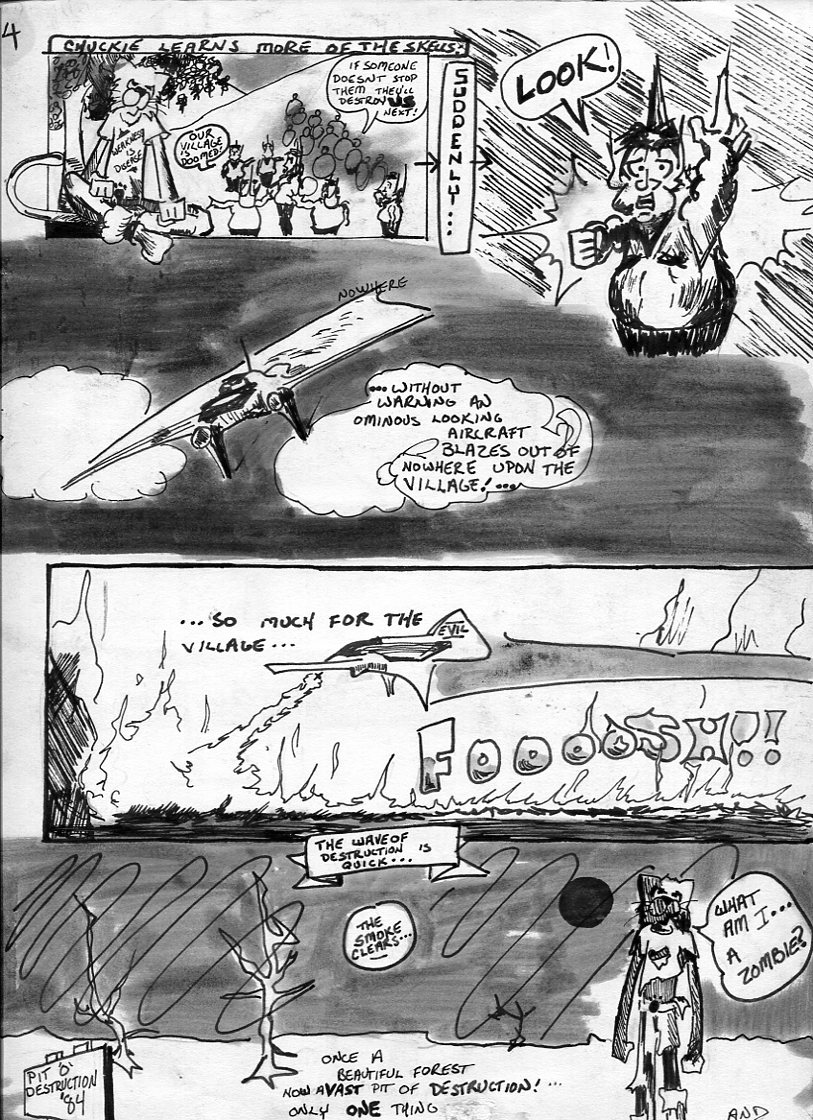 4
CHUCKIE LEARNS MORE OF THE SKELLS:
IF SOMEONE
DOESNT STOP
THEM THEY'LL
DESTROY US
NEXT!
WEAKNESS
IS
DISEASE
OUR
VILLAGE
IS
DOOMED!
SUDDENLY...
LOOK!
NOWHERE
...WITHOUT
WARNING AN
OMINOUS LOOKING
AIRCRAFT
BLAZES OUT OF
NOWHERE UPON THE
VILLAGE!...
...SO MUCH FOR THE
VILLAGE...
EVIL
FOOOOSH!!
THE WAVE OF
DESTRUCTION IS
QUICK...
THE
SMOKE
CLEARS...
WHAT
AM I...
A
ZOMBIE?
PIT 'O'
DESTRUCTION
'84
ONCE A
BEAUTIFUL FOREST
NOW A VAST PIT OF DESTRUCTION!...
ONLY ONE THING
AND